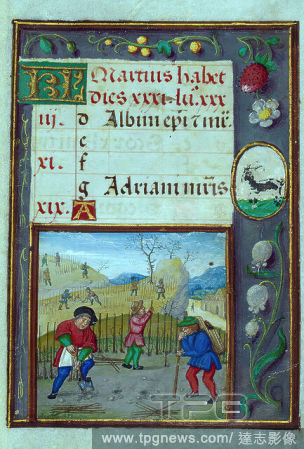 KL Martius habet
dies xxxi. lu. xxx
iij. d Albini ep̄i t mr̄.
e
xi. f
g Adriani mr̄is
xix. A
TPG
www.tpgnews.com/達志影像